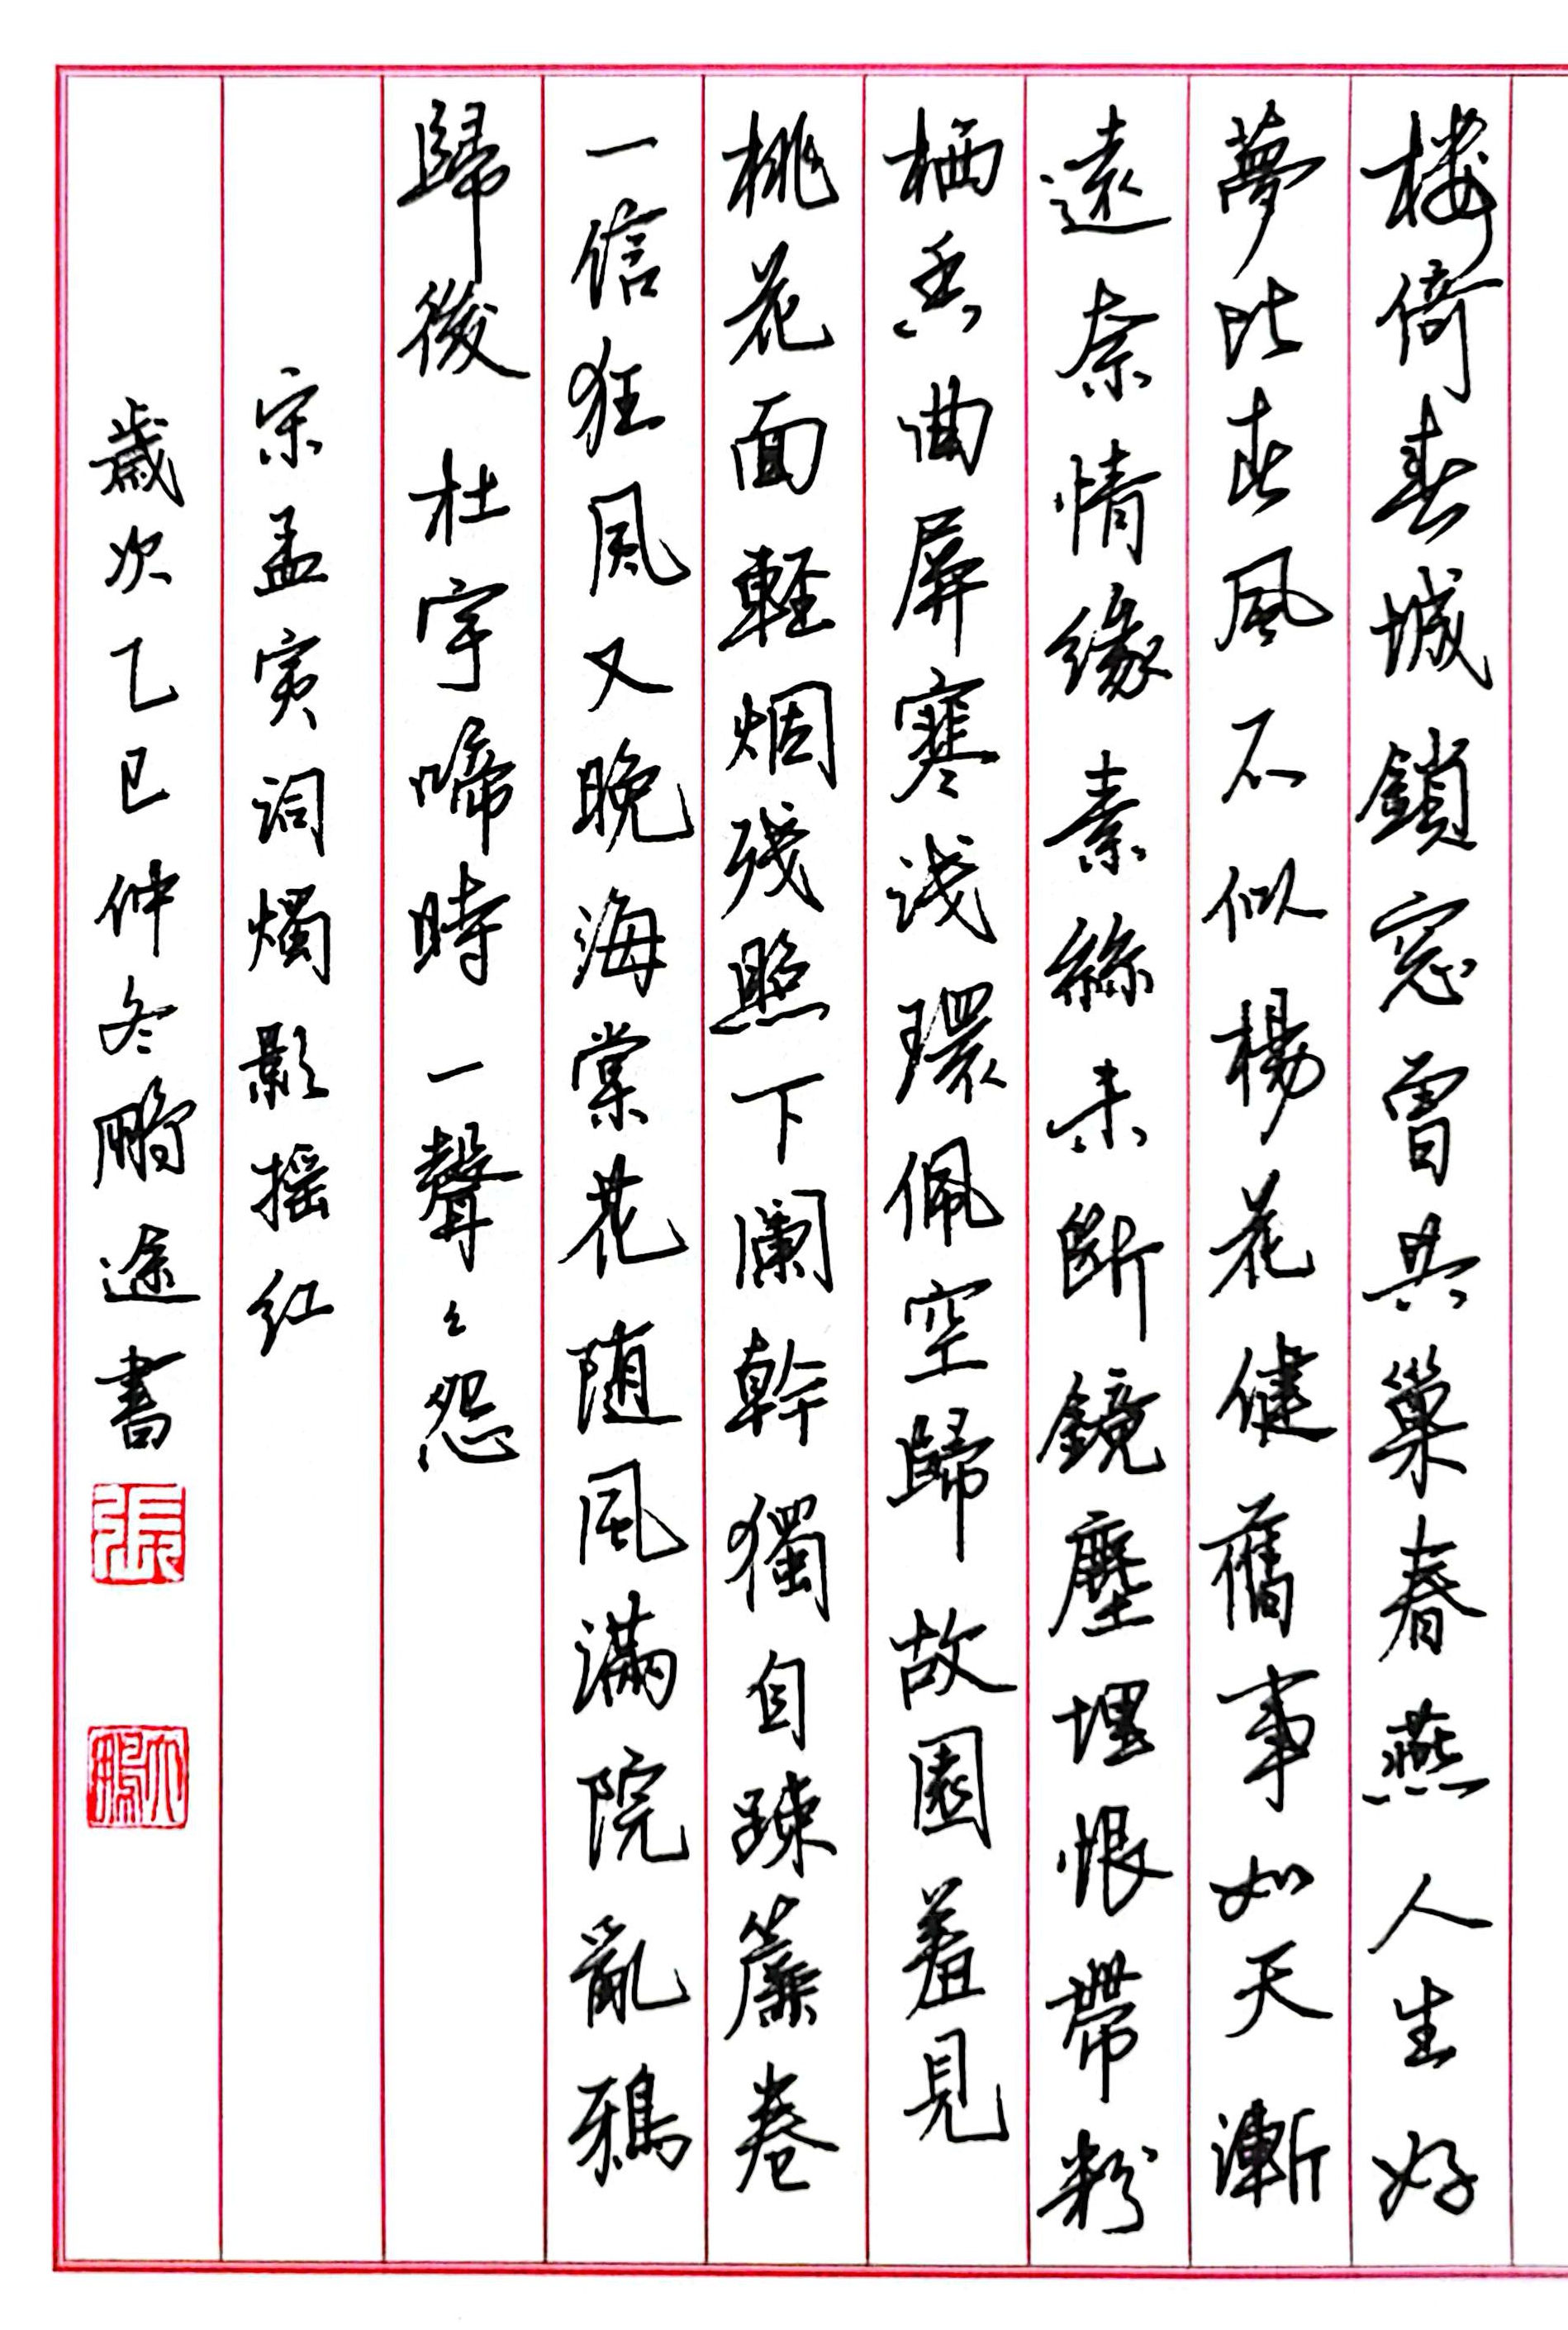 楼倚春城鎖窓曾共巢春燕人生好
夢比春風不似楊花健舊事如天漸
遠奈情緣素絲未斷鏡塵埋恨帶粉
栖香曲屏寒浅環佩空歸故園羞見
桃花面軽烟残照下闌幹獨自踈簾卷
一信狂風又晚海棠花随風滿院亂鴉
歸後杜宇啼時一聲〻怨
宋孟寅詞燭影摇红
歲次乙巳仲冬鵬途書
張
大鵬